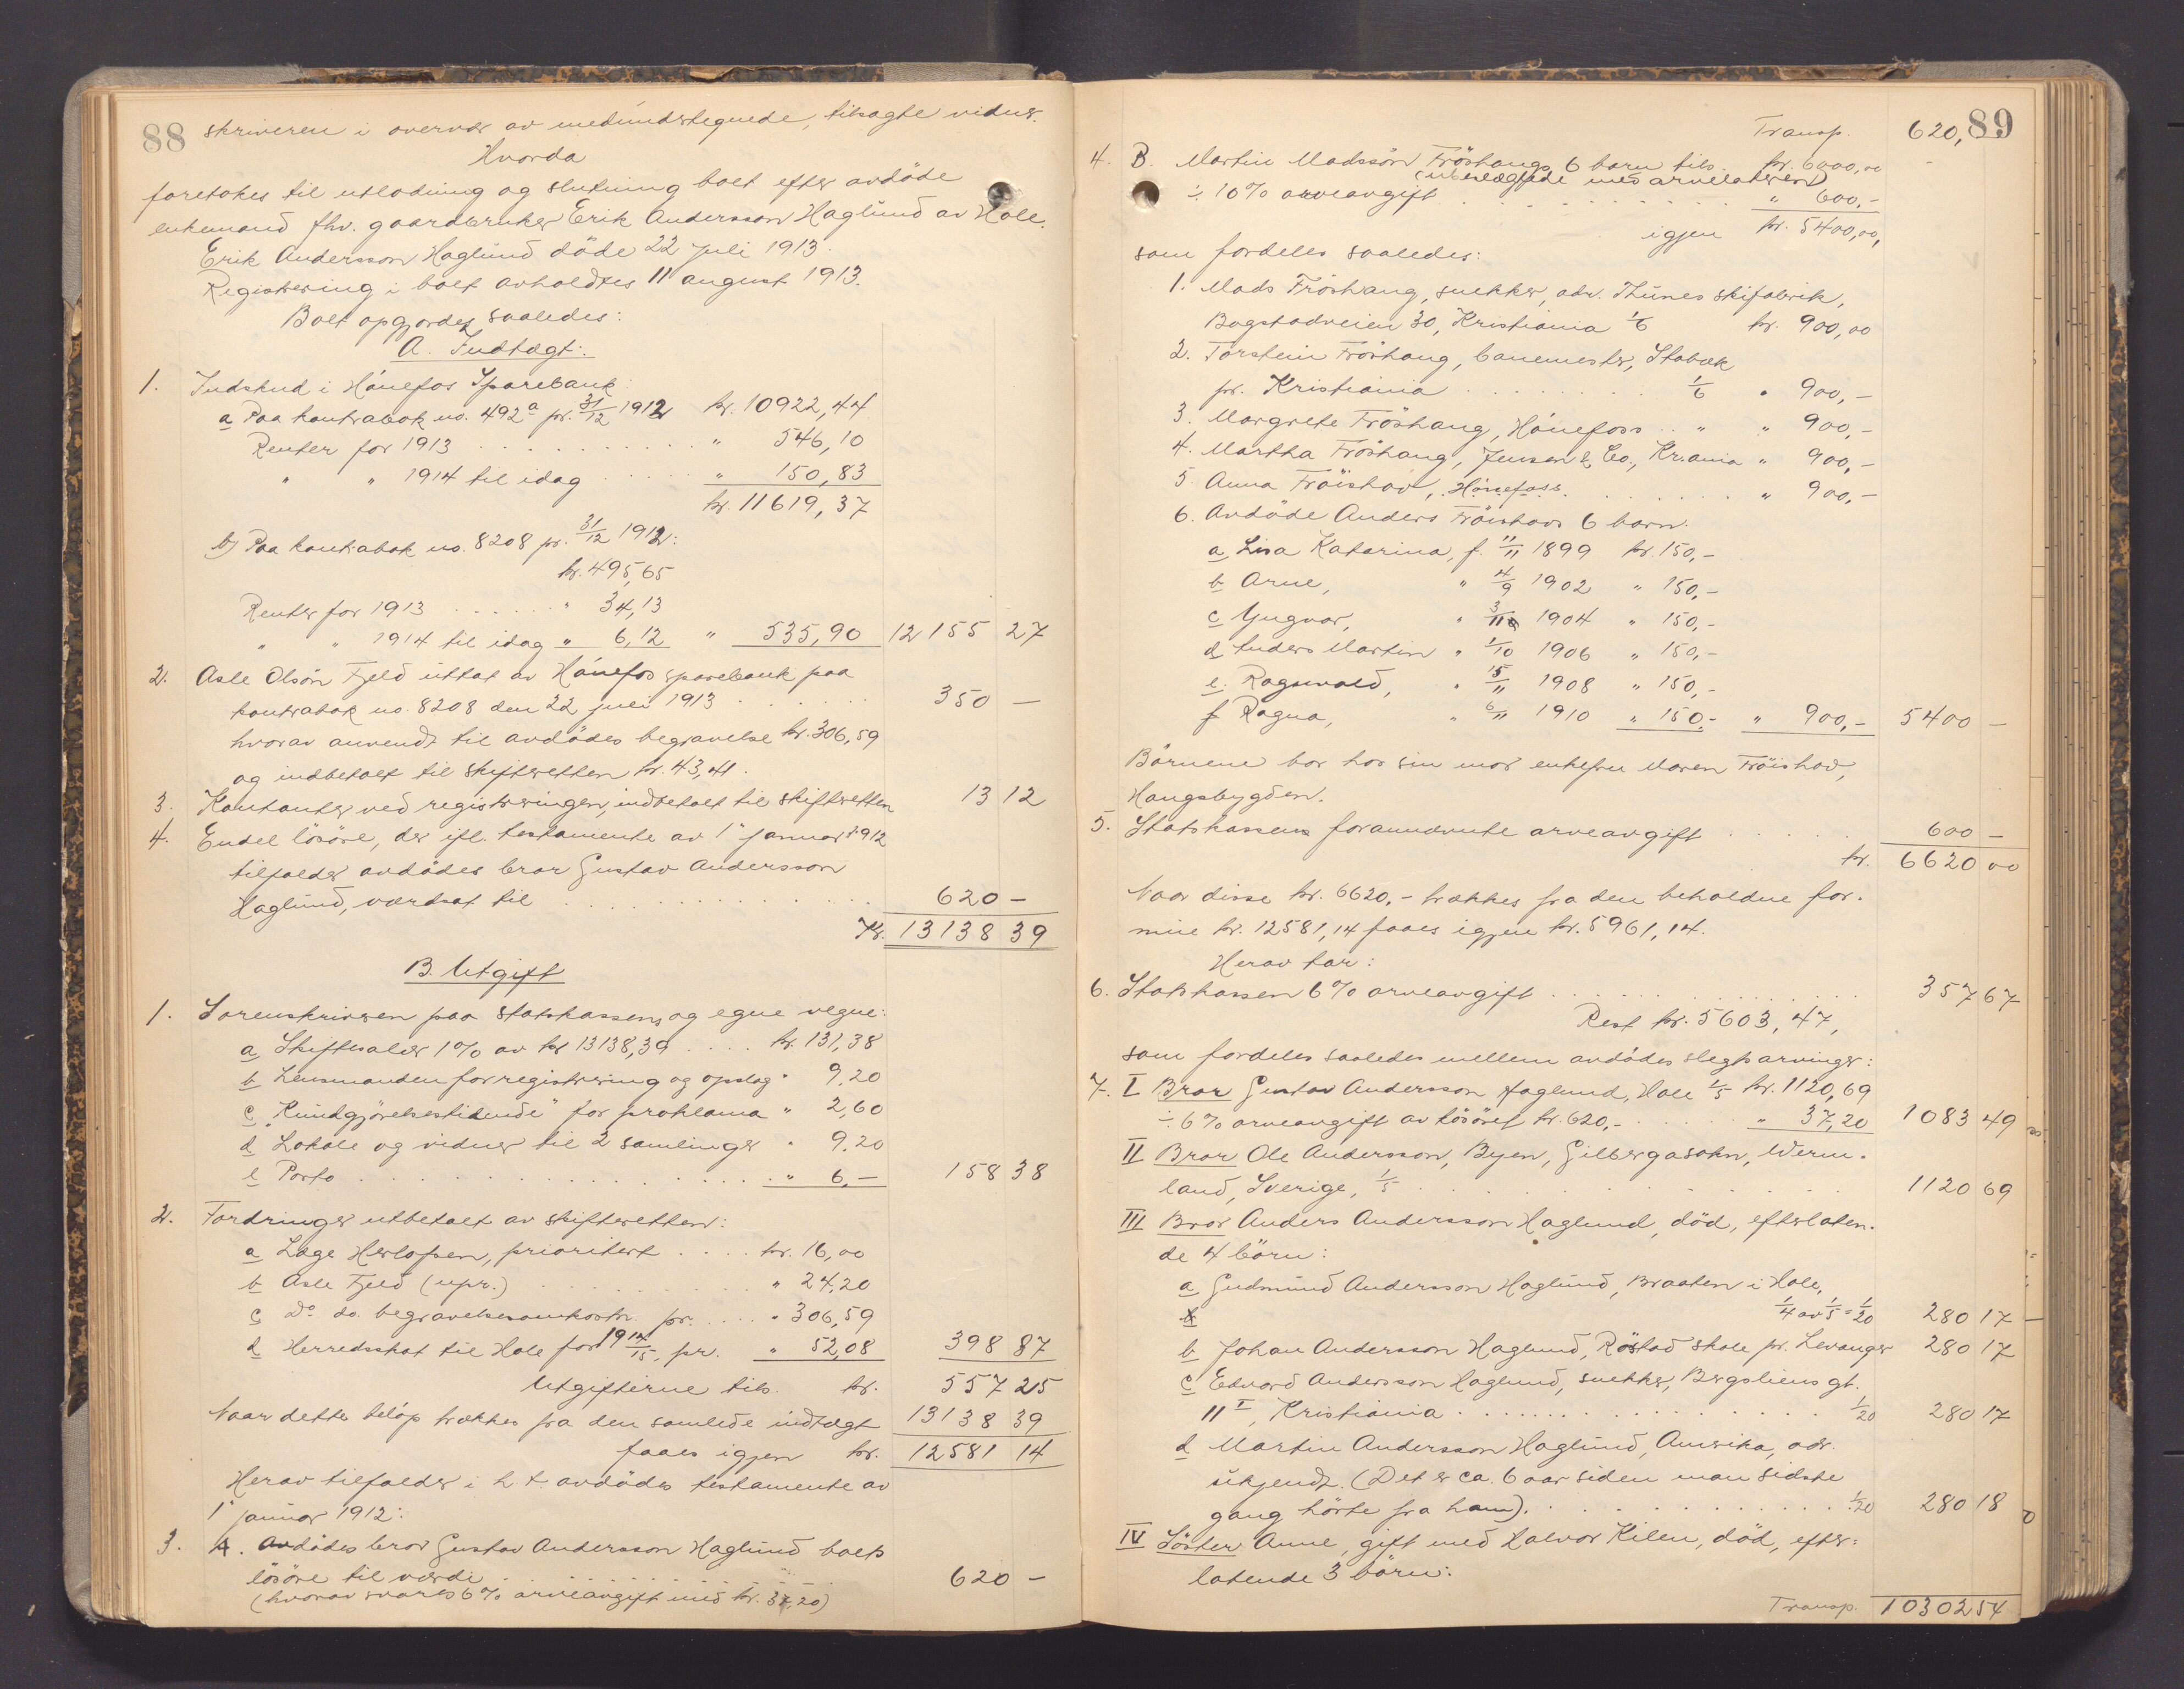 88
skriveren i overvær av medundertegnede, tilsagte vidner.
Hvorda
foretokes til utlodning og slutning boet efter avdöde
enkemand fhv. gaardbruker Erik Andersson Haglund av Hole.
Erik Andersson Haglund döde 22 juli 1913.
Registrering i boet avholdtes 11 august 1913.
Boet opgjordes saaledes:
A. Indtægt:
1. Indskud i Hönefos Sparebank:
a Paa kontrabok no. 492a pr. 31/12 1912 kr. 10922,44
Renter for 1913 . . . . " 546,10
" " 1914 til idag . . . . " 150,83
kr. 11619,37
b) Paa kontrabok no. 8208 pr. 31/12 1912:
kr. 495,65
Renter for 1913 . . . . " 34,13
" " 1914 til idag " 6,12 " 535,90 12155 27
2. Asle Olsön Fjeld uttat av Hönefos sparebank paa
kontrabok no. 8208 den 22 juli 1913 . . . . 350 —
hvorav anvendt til avdödes begravelse kr. 306,59
og indbetalt til skifteretten kr. 43,41.
3. Kontanter ved registreringen, indbetalt til skifteretten 13 12
4. Endel lösöre, der ifl. testamente av 1 januar 1912
tilfalder avdödes bror Gustav Andersson
Haglund, værdsat til . . . . 620 —
Kr. 13138 39
B. Utgift
1. Sorenskriveren paa statskassens og egne vegne:
a Skiftesalær 1% av kr 13138,39 . . . . kr. 131,38
b Lensmanden for registrering og opslag " 9,20
c "Kundgjörelsestidende" for proklama " 2,60
d Lokale og vidner til 2 samlinger " 9,20
e Porto . . . . " 6,— 158 38
2. Fordringer utbetalt av skifteretten:
a Læge Herlofsen, prioritert . . . . kr. 16,00
b Asle Fjeld (upr.) . . . . " 24,20
c Do. do. begravelsesomkostn. pr. . . . " 306,59
d Herredsskat til Hole for 1914/15, pr. " 52,08 398 87
Utgifterne tils. kr. 557 25
Naar dette belöp trækkes fra den samlede indtægt 13138 39
faaes igjen kr. 12581 14
Herav tilfalder i h. t. avdödes testamente av
1 januar 1912:
3. A. Avdödes bror Gustav Andersson Haglund boets
lösöre til værdi . . . . 620 —
(hvorav svares 6% arveavgift med kr. 37,20)
89
Transp. 620,
4. B. Martin Madssön Fröshaugs 6 barn tils. kr. 6000,00
(ubeslegtede med arvelateren)
÷ 10% arveavgift . . . . " 600,-
igjen kr. 5400,00,
som fordeles saaledes:
1. Mads Fröshaug, snekker, adr. Thunes skifabrik,
Bogstadveien 30, Kristiania 1/6 kr. 900,00
2. Torstein Fröshaug, banemester, Stabæk
pr. Kristiania . . . . 1/6 " 900,—
3. Margrete Fröshaug, Hönefoss . . " " 900,—
4. Martha Fröshaug, Jensen & Co., Kr.ania " 900,—
5. Anna Fröishov, Hönefoss. . . . . " 900,—
6. Avdöde Anders Fröishovs 6 barn:
a Lisa Katarina, f. 11/11 1899 kr. 150,—
b Arne, " 4/9 1902 " 150,—
c Yngvar, " 3/11 1904 " 150,—
d Anders Martin " 1/10 1906 " 150,—
e. Ragnvald, " 15/11 1908 " 150,—
f Ragna, " 6/11 1910 " 150.- " 900,— 5400 —
Börnene bor hos sin mor enkefru Maren Fröishov,
Haugsbygden.
5. Statskassens forannævnte arveavgift . . . . 600 —
kr. 6620 00
Naar disse kr. 6620,- trækkes fra den beholdne for-
mue kr. 12581,14 faaes igjen kr. 5961,14.
Herav tar:
6. Statskassen 6% arveavgift . . . . 357 67
Rest kr. 5603,47,
som fordeles saaledes mellem avdödes slegtsarvinger:
7. I Bror Gustav Andersson Haglund, Hole 1/5 kr. 1120,69
÷ 6% arveavgift av lösöret kr. 620,- . . . . " 37,20 1083 49
II Bror Ole Andersson, Byen, Gilbergasokn, Werm-
land, Sverige, 1/5 . . . . 1120 69
III Bror Anders Andersson Haglund, död, efterlaten-
de 4 börn:
a Gudmund Andersson Haglund, Braaten i Hole,
1/4 av 1/5 = 1/20 280 17
b Johan Andersson Haglund, Röstad skole pr. Levanger 280 17
c Edvard Andersson Haglund, snekker, Bergsliens gt.
11 I, Kristiania . . . . 1/20 280 17
d Martin Andersson Haglund, Amerika, adr.
ukjendt. (Det er ca. 6 aar siden man sidste
gang hörte fra ham). . . . . 1/20 280 18
IV Söster Anne, gift med Halvor Kilen, död, efter-
latende 3 börn:
Transp. 10302 54